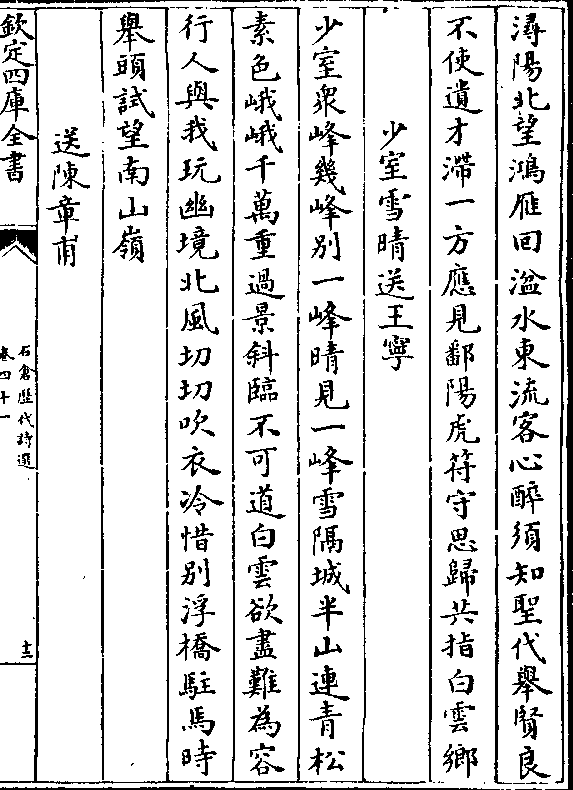 潯陽北望鴻雁回湓水東流客心醉須知聖代舉賢良
不使遺才滯一方應見鄱陽虎符守思歸共指白雲鄉
少室雪晴送王寧
少室衆峰幾峰別一峰晴見一峰雪隔城半山連青松
素色峨峨千萬重過景斜臨不可道白雲欲盡難為容
行人與我玩幽境北風切切吹衣冷惜別浮橋駐馬時
舉頭試望南山嶺
送陳章甫
欽定四庫全書
石倉歴代詩選
卷四十一
十三